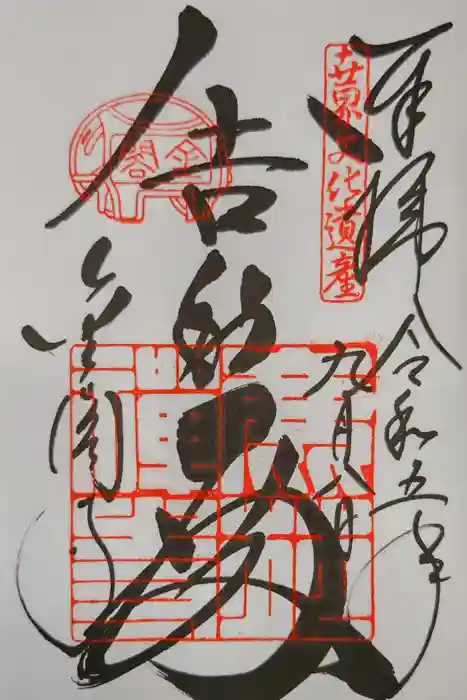 奉拝 令和五年
九月八日
世界文化遺産
舎利殿
金閣
金閣寺